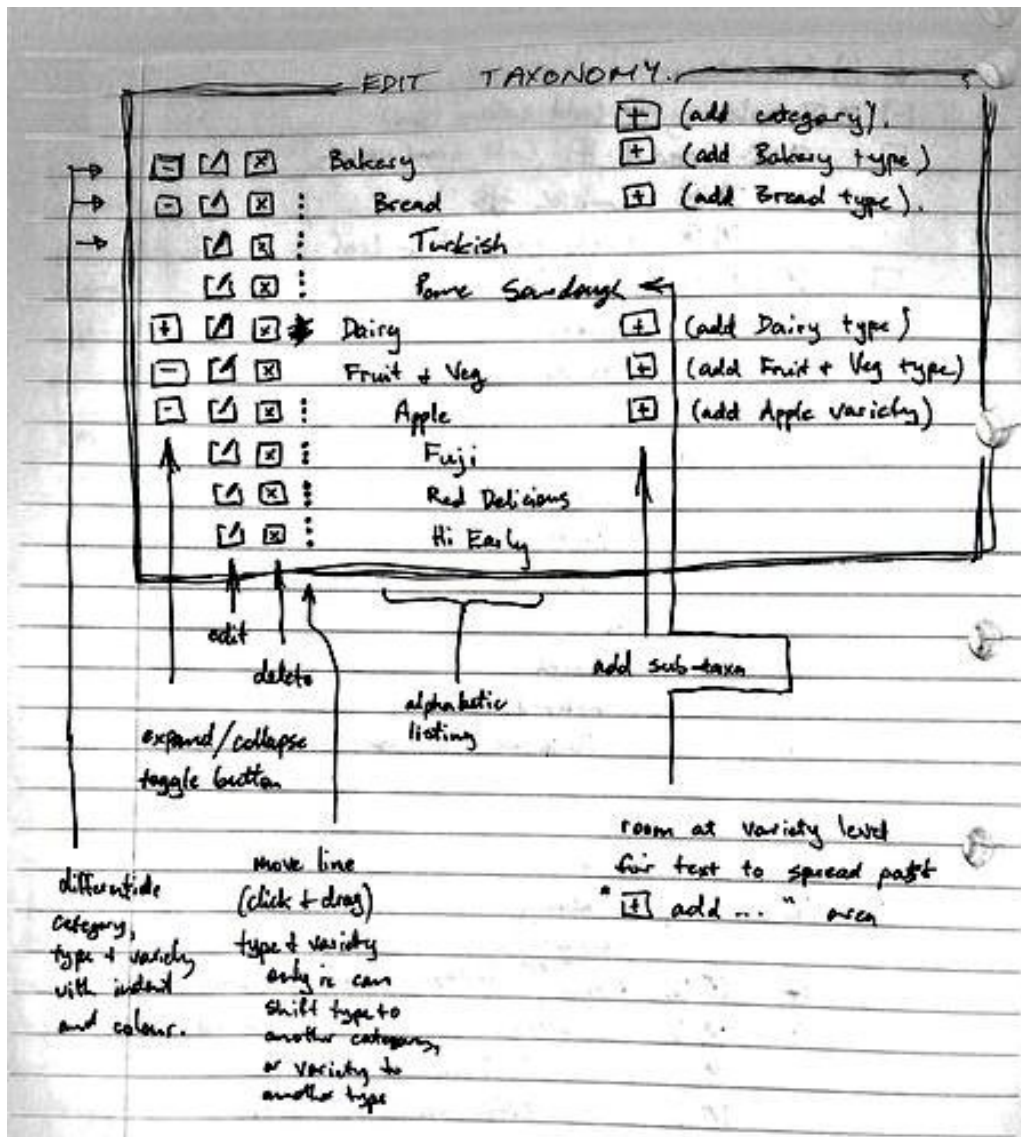 EDIT TAXONOMY.
[+] (add category).
[-] [x] Bakery [+] (add Bakery type)
[-] [x] Bread [+] (add Bread type).
[x] Turkish
[x] Sourdough
[+] [x] Dairy [+] (add Dairy type)
[-] [x] Fruit + Veg [+] (add Fruit + Veg type)
[-] [x] Apple [+] (add Apple variety)
[x] Fuji
[x] Red Delicious
[x] Hi Early
edit
delete
expand/collapse
toggle button
alphabetic
listing
add sub-taxa
differentiate
category,
type + variety
with indent
and colour.
move line
(click + drag)
type + variety
only ie can
shift type to
another category,
or variety to
another type
room at variety level
for text to spread past
"[+] add ... " area